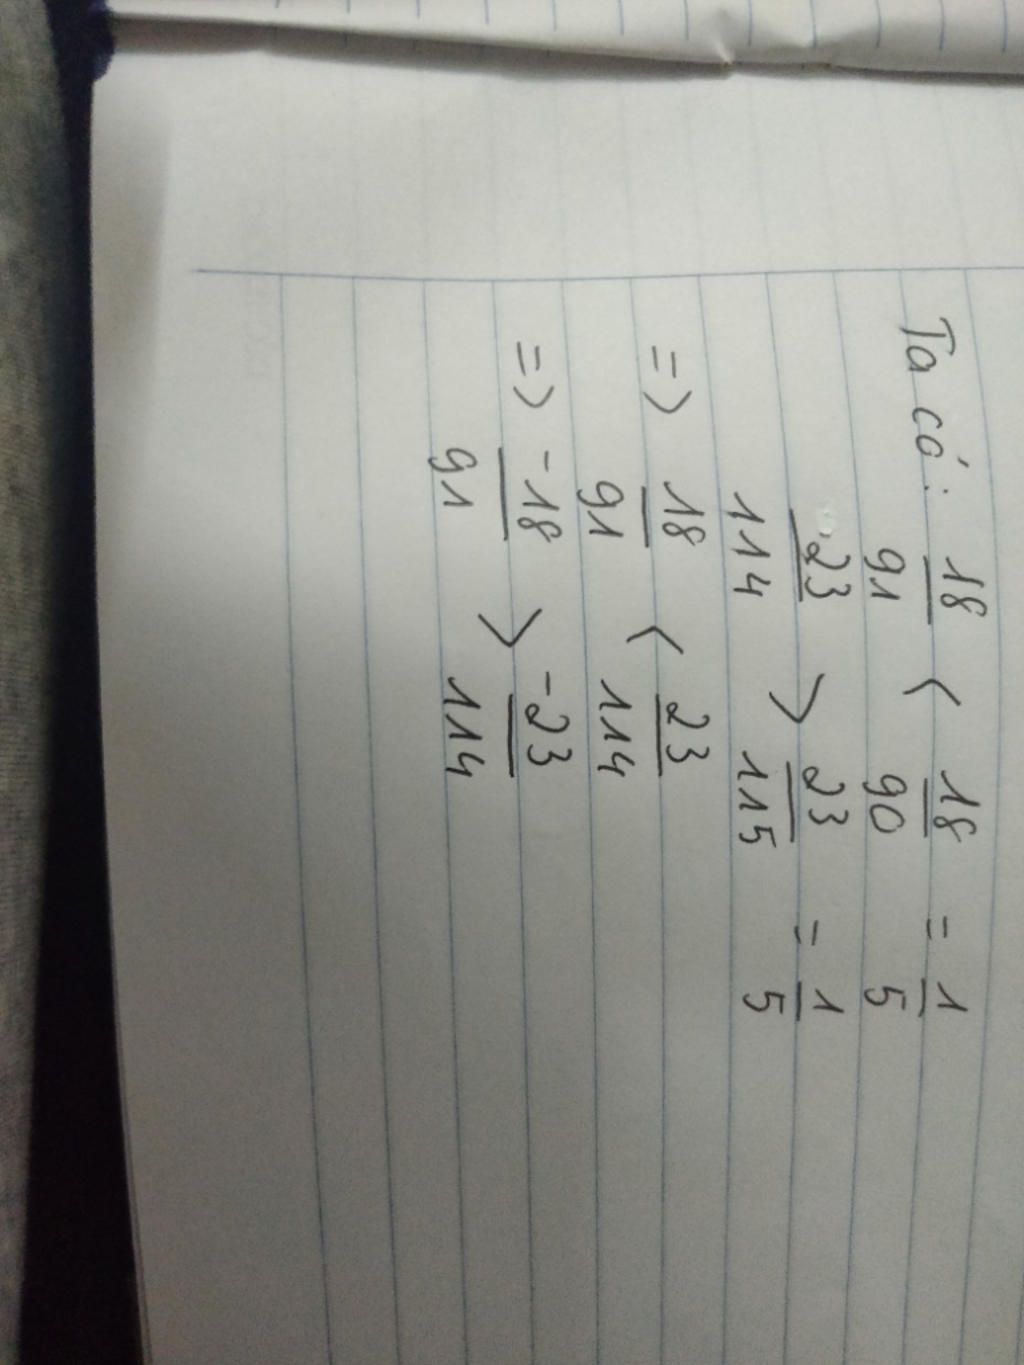 Ta có: 18/91 < 18/90 = 1/5
23/114 > 23/115 = 1/5
=> 18/91 < 23/114
=> -18/91 > -23/114